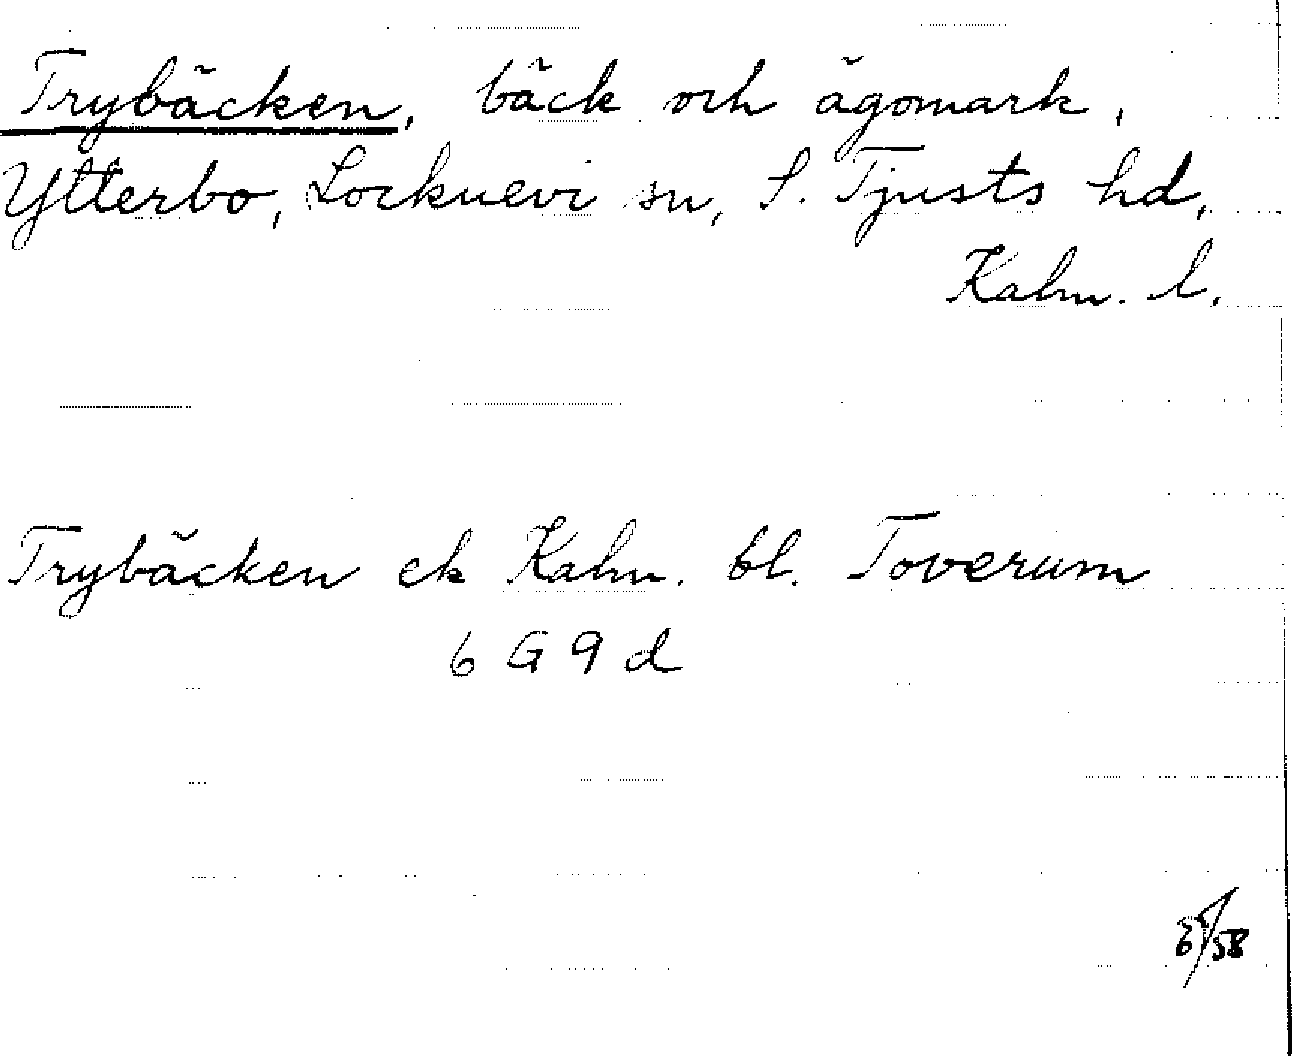 Trybäcken, bäck och ägomark,
Ytterbo, Locknevi sn, S. Tjusts hd,
Kalm. l.
Trybäcken ek Kalm. bl. Toverum
6 G 9 d